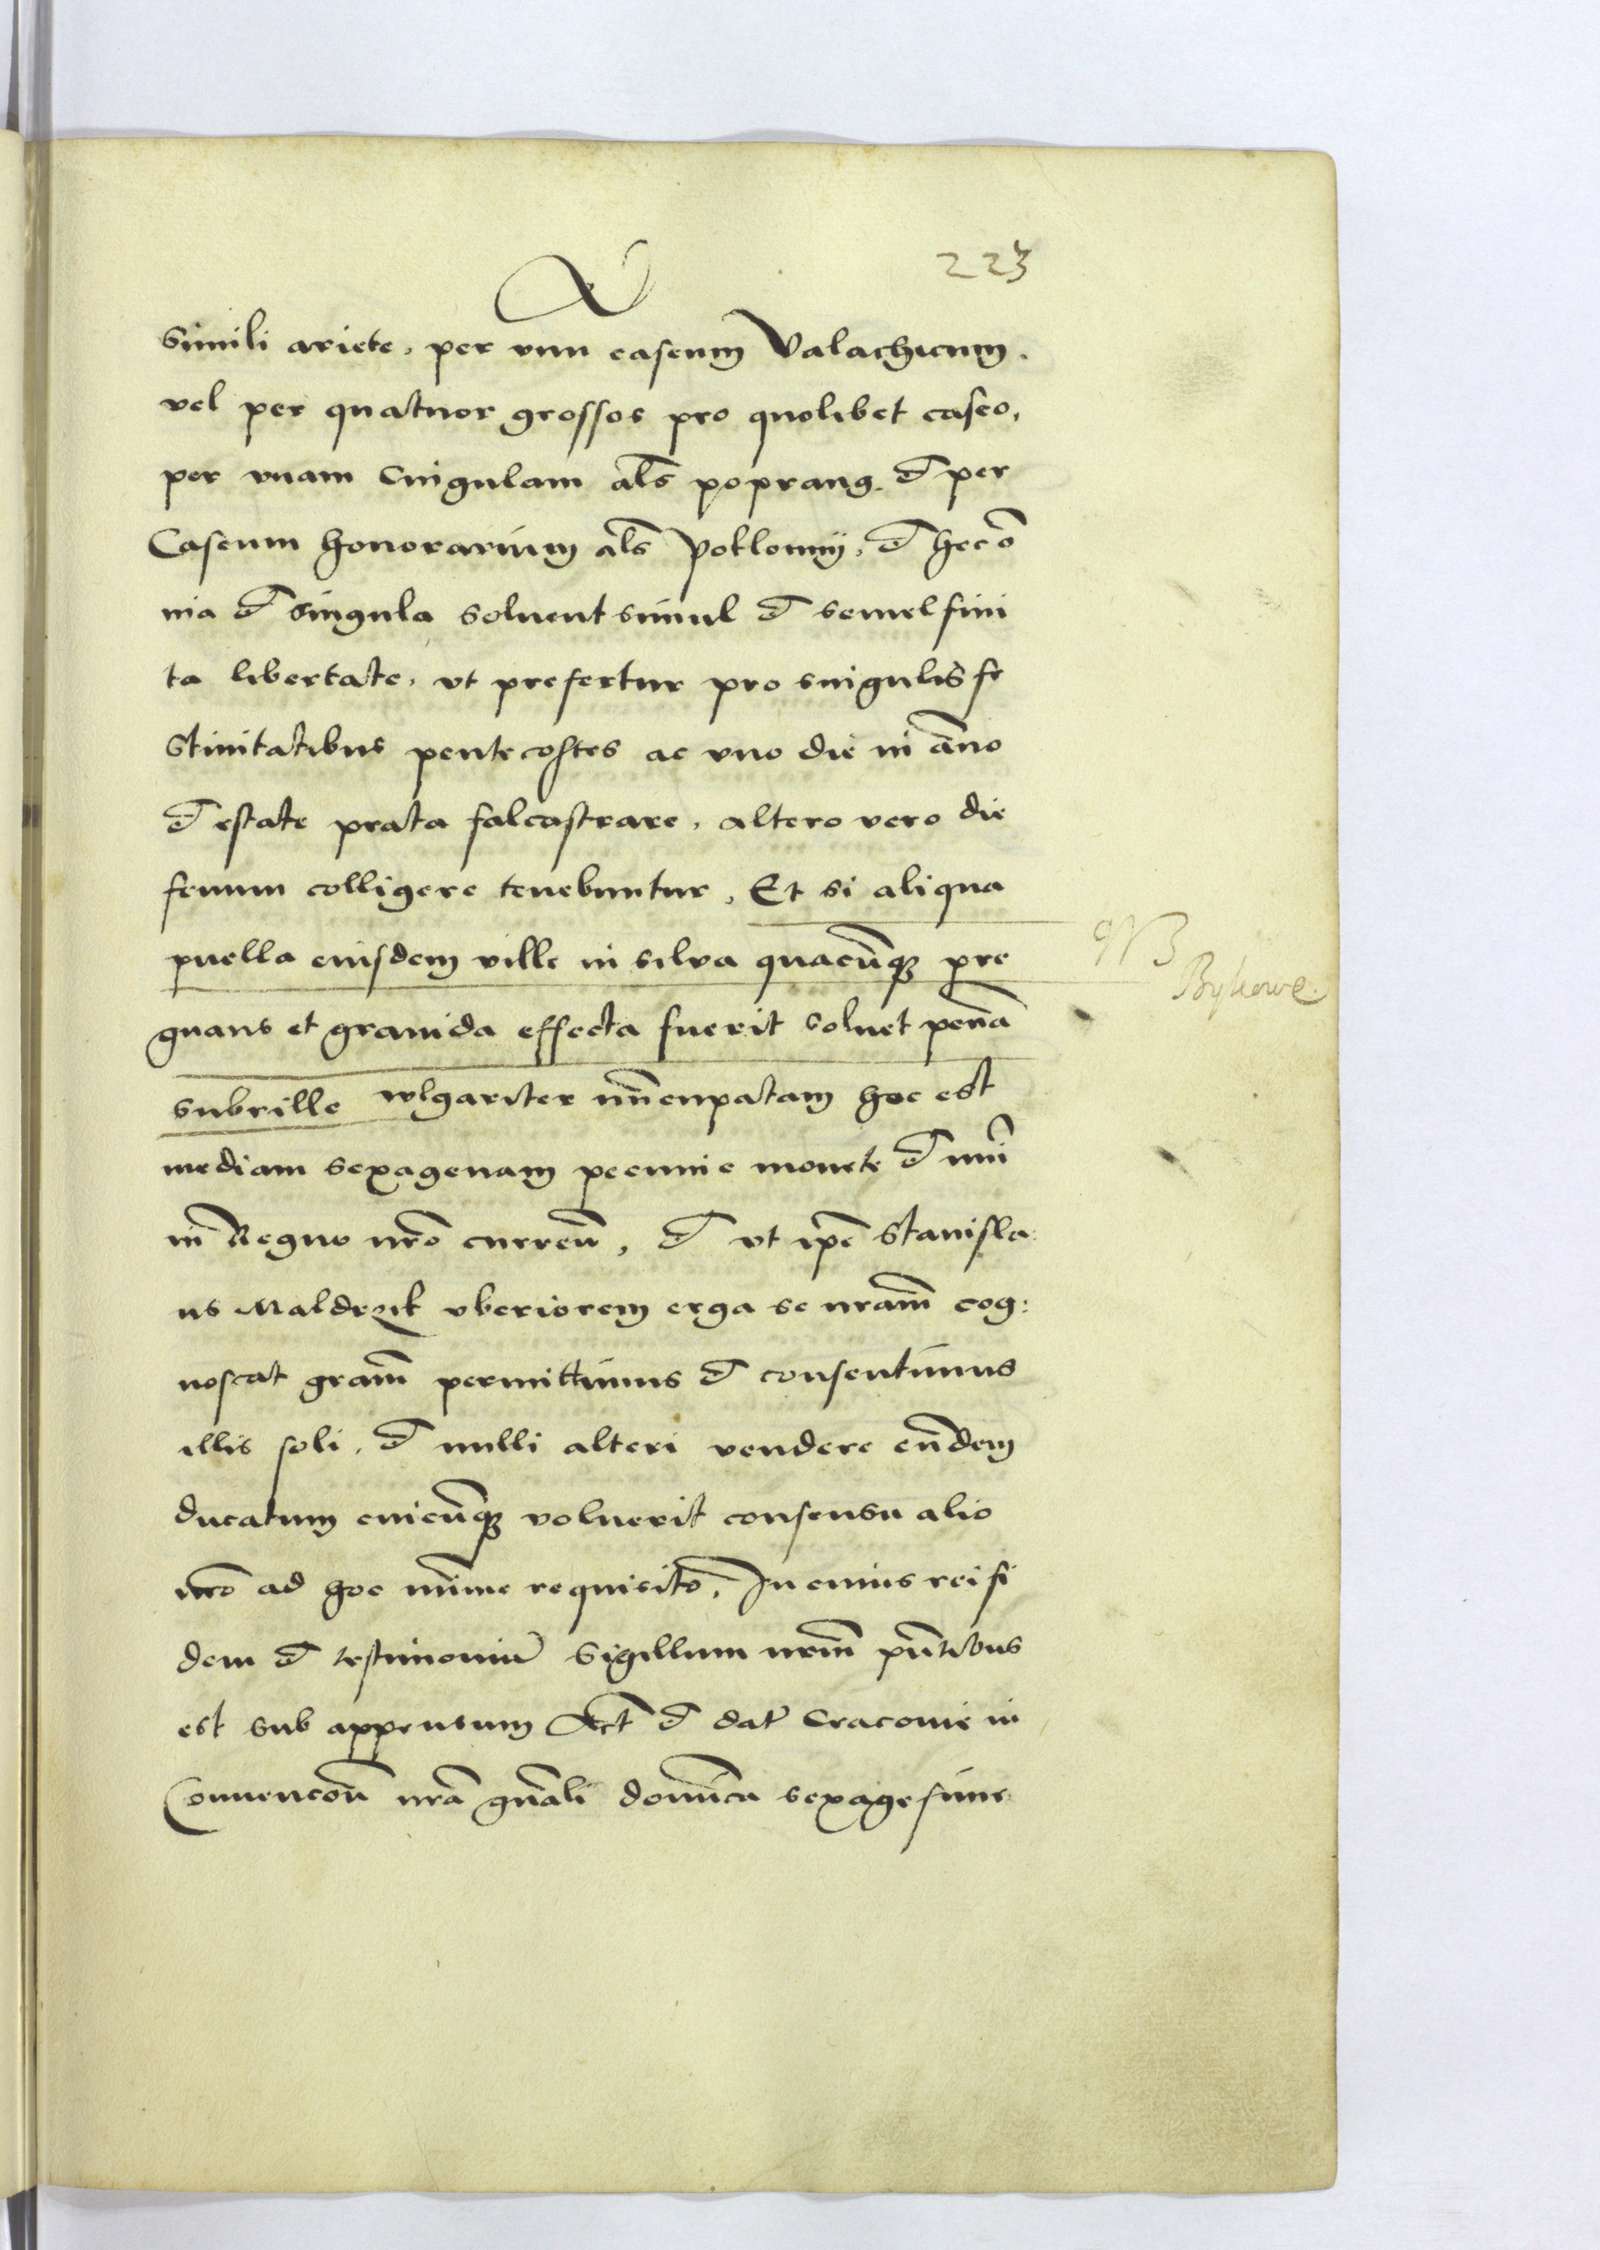 223
simili ariete, per vnu caseum Valachicum.
vel per quatuor grossos pro quolibet caseo,
per vnam Cingulam als poprang. et per
Caseum honorarium als Poklonny, et hec o
nia et singula soluent simul et semel fini
ta libertate, vt prefertur pro singulis fe
stiuitatibus pentecostes ac vno die in ano
et estate prata falcastrare, altero vero die
fenum colligere tenebuntur, Et si aliqua
puella eiusdem ville in silua quacunque pre
gnans et grauida effecta fuerit soluet pena
subrille wlgariter nucupatam hoc est
mediam sexagenam pecunie monete et nui
in Regno nro curren, et vt ipe Stanisla
us Maldrzik vberiorem erga se nram cog:
noscat gram permittimus et consentimus
illis soli, et nulli alteri vendere eundem
ducatum cuicunque voluerit consensu alio
nro ad hoc mime requisito, In cuius rei fi
dem et testimoniu Sigillum nrm pntibus
est sub appensum Act et dat Cracouie in
Conuencon nra gnali dominica sexagesime
NB
Bykowe.